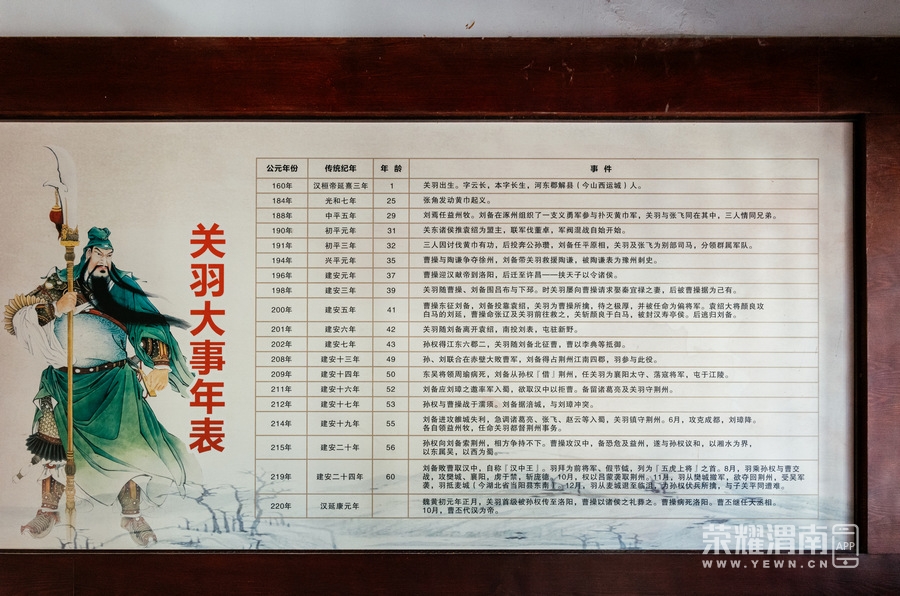 关羽大事年表
公元年份 传统纪年 年 龄 事 件
160年 汉桓帝延熹三年 1 关羽出生。字云长，本字长生，河东郡解县（今山西运城）人。
184年 光和七年 25 张角发动黄巾起义。
188年 中平五年 29 刘焉任益州牧。刘备在涿州组织了一支义勇军参与扑灭黄巾军，关羽与张飞同在其中，三人情同兄弟。
190年 初平元年 31 关东诸侯推袁绍为盟主，联军伐董卓，军阀混战自始开始。
191年 初平三年 32 三人因讨伐黄巾有功，后投奔公孙瓒，刘备任平原相，关羽及张飞为别部司马，分领群属军队。
194年 兴平元年 35 曹操与陶谦争夺徐州，刘备带关羽救援陶谦，被陶谦表为豫州刺史。
196年 建安元年 37 曹操迎汉献帝到洛阳，后迁至许昌——挟天子以令诸侯。
198年 建安三年 39 关羽随曹操、刘备围吕布与下邳。时关羽屡向曹操请求娶秦宜禄之妻，后被曹操据为己有。
200年 建安五年 41 曹操东征刘备，刘备投靠袁绍，关羽为曹操所擒，待之极厚，并被任命为偏将军。袁绍大将颜良攻
白马的刘延，曹操命张辽及关羽前往救之，关斩颜良于白马，被封汉寿亭侯。后逃归刘备。
201年 建安六年 42 关羽随刘备离开袁绍，南投刘表，屯驻新野。
202年 建安七年 43 孙权得江东六郡二，关羽随刘备北征曹，曹以李典等抵御。
208年 建安十三年 49 孙、刘联合在赤壁大败曹军，刘备得占荆州江南四郡，羽参与此役。
209年 建安十四年 50 东吴将领周瑜病死，刘备从孙权「借」荆州，任关羽为襄阳太守、荡寇将军，屯于江陵。
211年 建安十六年 52 刘备应刘璋之邀率军入蜀，欲取汉中以拒曹。备留诸葛亮及关羽守荆州。
212年 建安十七年 53 孙权与曹操战于濡须。刘备据涪城，与刘璋冲突。
214年 建安十九年 55 刘备进攻雒城失利，急调诸葛亮、张飞、赵云等入蜀，关羽镇守荆州。6月，攻克成都，刘璋降。
各自领益州牧，任命关羽都督荆州事务。
215年 建安二十年 56 孙权向刘备索荆州，相方争持不下。曹操攻汉中，备恐危及益州，遂与孙权议和，以湘水为界，
以东属吴，以西为蜀。
219年 建安二十四年 60 刘备败曹取汉中，自称「汉中王」。羽拜为前将军、假节钺，列为「五虎上将」之首。8月，羽乘孙权与曹交
战，攻樊城、襄阳，虏于禁，斩庞德。10月，权以吕蒙袭取荆州。11月，羽从樊城撤军，欲夺回荆州，受吴军
袭，羽抵麦城（今湖北省当阳县东南）。12月，羽从麦城退至临沮，为孙权伏兵所擒，与子关平同遭难。
220年 汉延康元年 魏黄初元年正月，关羽首级被孙权传至洛阳，曹操以诸侯之礼葬之。曹操病死洛阳。曹丕继任大丞相。
10月，曹丕代汉为帝。
荣耀渭南 APP
WWW.YEWN.CN